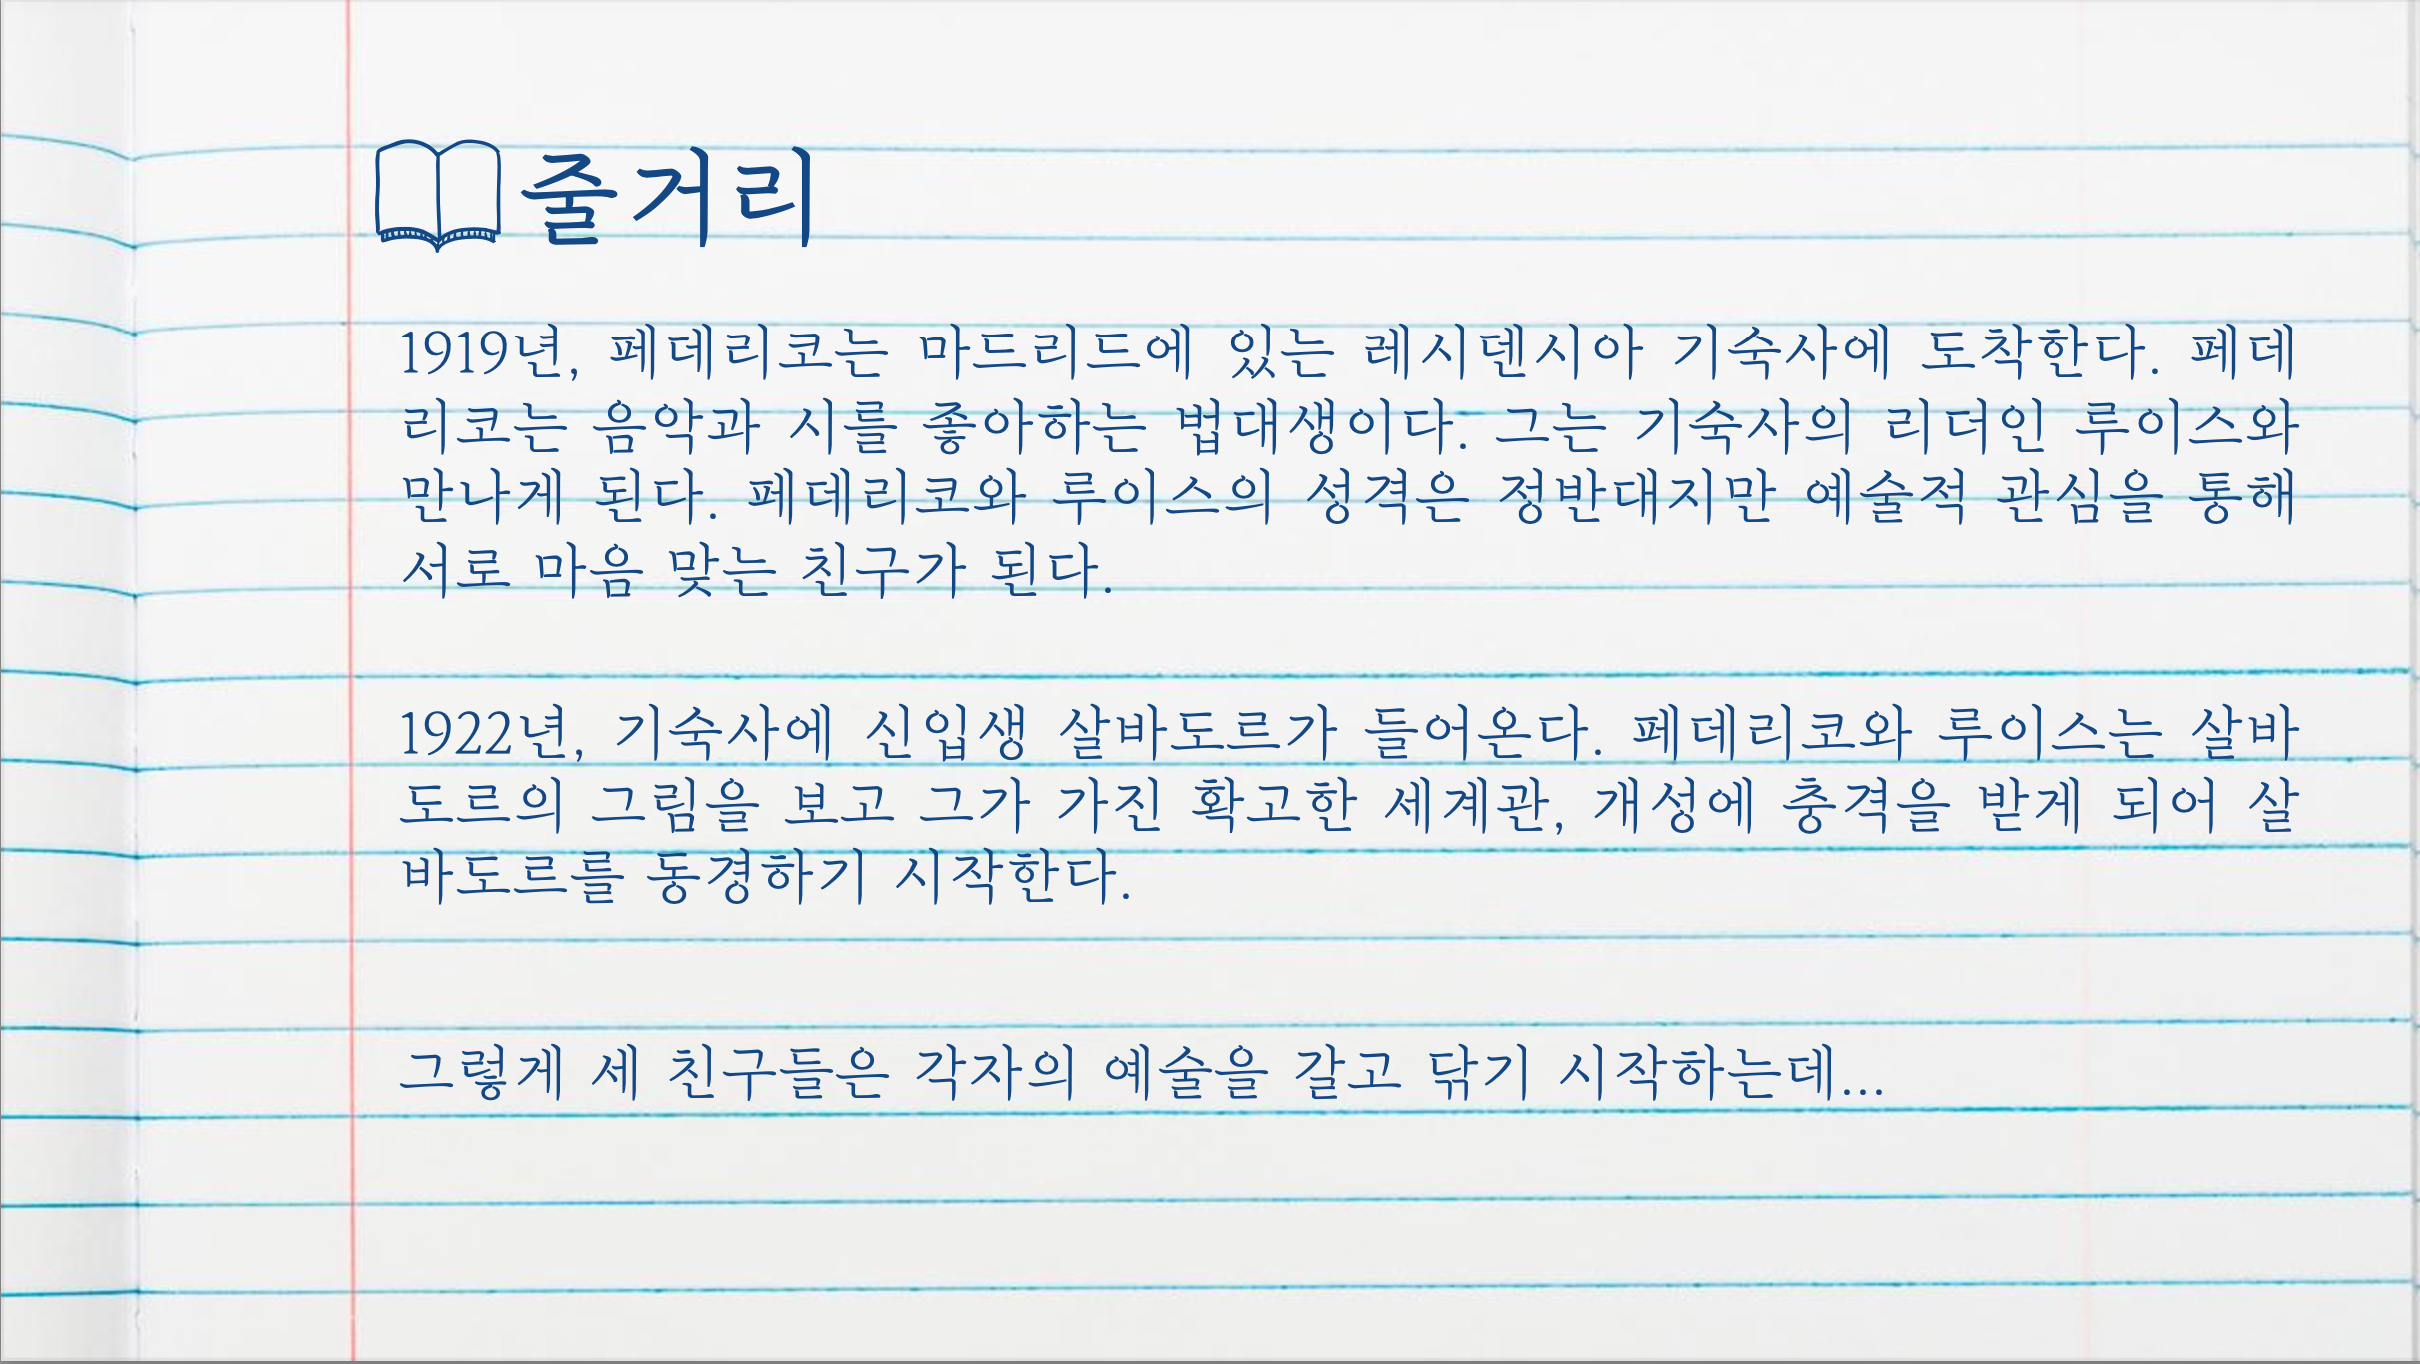 줄거리
1919년, 페데리코는 마드리드에 있는 레시덴시아 기숙사에 도착한다. 페데
리코는 음악과 시를 좋아하는 법대생이다. 그는 기숙사의 리더인 루이스와
만나게 된다. 페데리코와 루이스의 성격은 정반대지만 예술적 관심을 통해
서로 마음 맞는 친구가 된다.
1922년, 기숙사에 신입생 살바도르가 들어온다. 페데리코와 루이스는 살바
도르의 그림을 보고 그가 가진 확고한 세계관, 개성에 충격을 받게 되어 살
바도르를 동경하기 시작한다.
그렇게 세 친구들은 각자의 예술을 갈고 닦기 시작하는데...